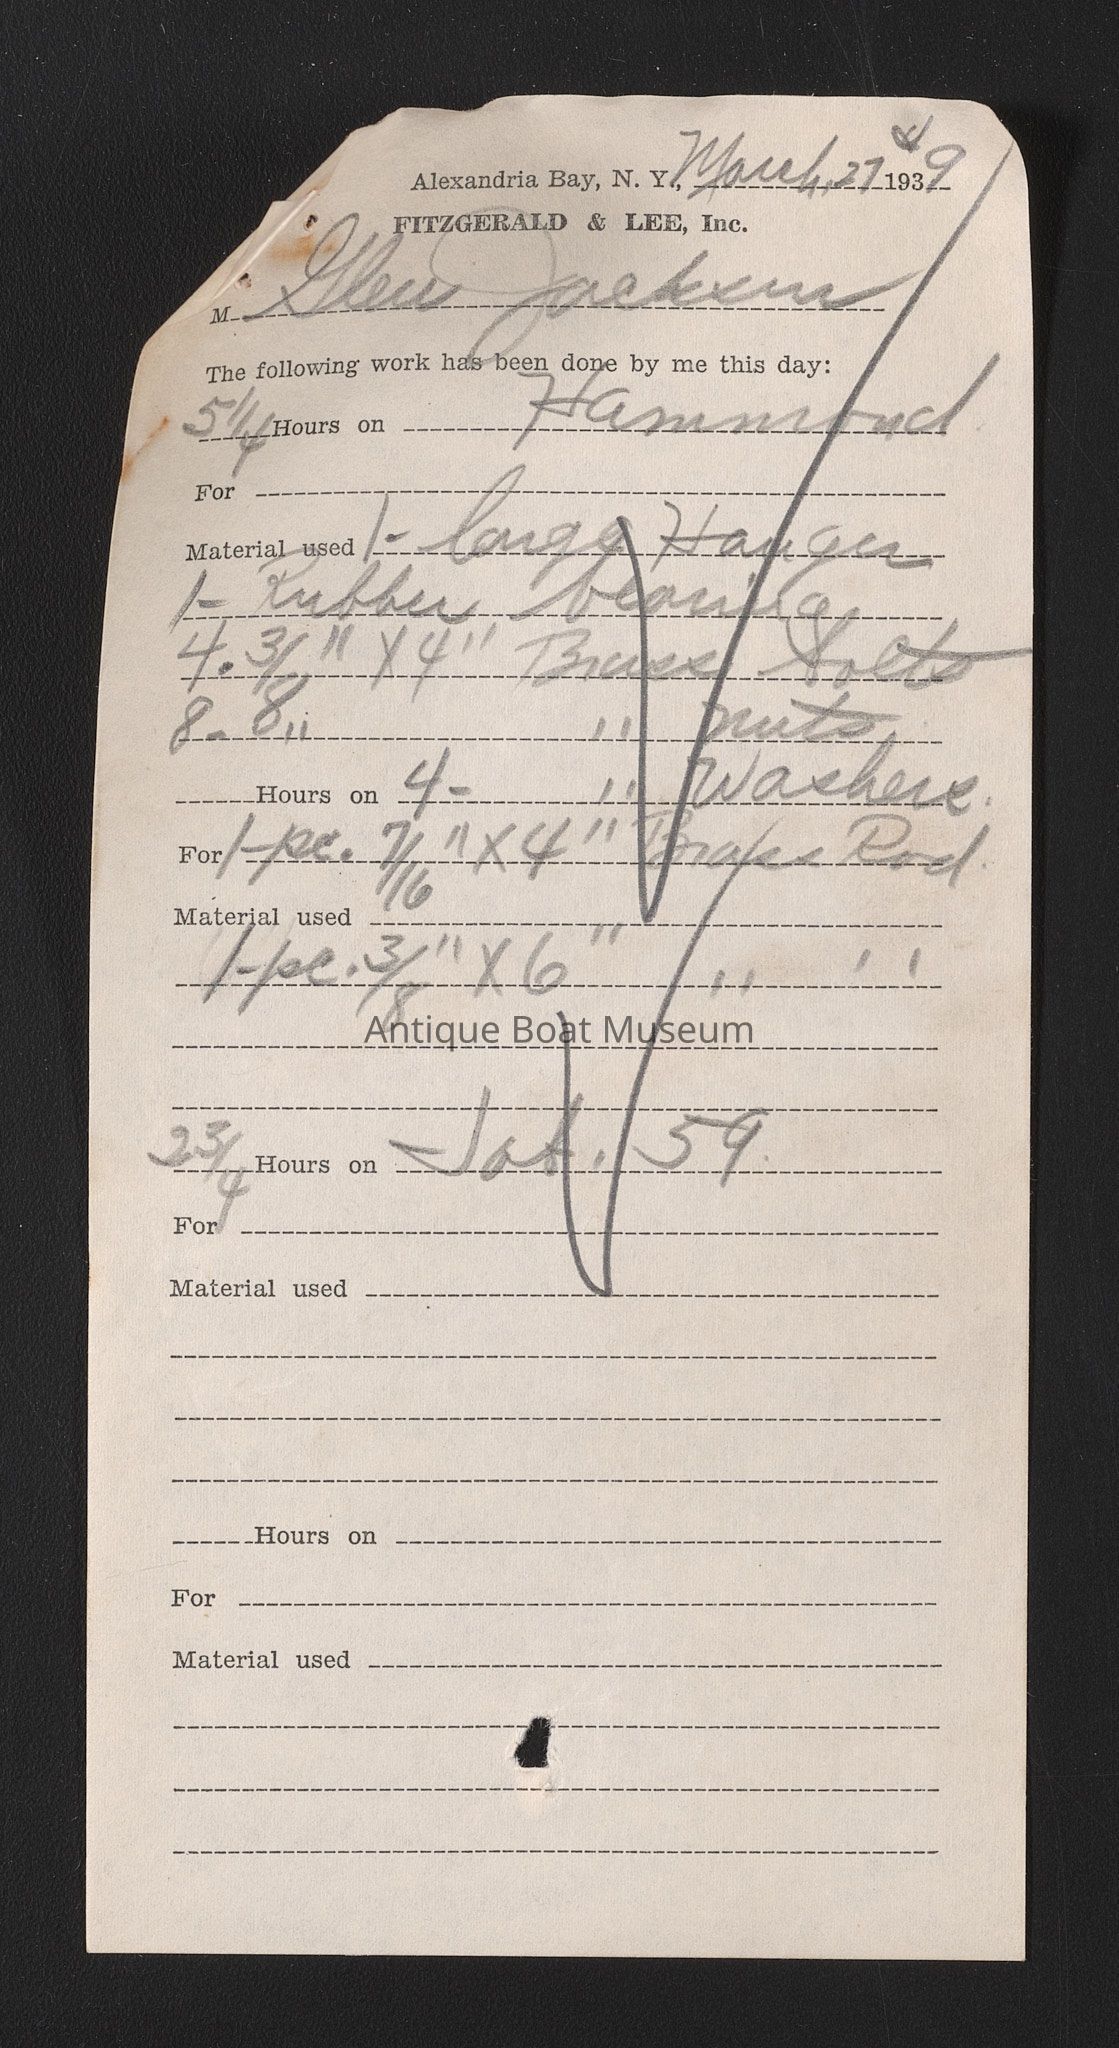 Alexandria Bay, N. Y., March, 27 1939
4
FITZGERALD & LEE, Inc.
M Glen Jackson
The following work has been done by me this day:
5 1/4 Hours on Hammond
For
Material used 1- large Hanger
1- Rubber bearing
4. 3/8" X 4" Brass bolts
8- " " nuts,
Hours on 4- " Washers.
For 1-pc. 7/16" X 4" Brass Rod.
Material used
1-pc. 3/8" X 6" " "
Antique Boat Museum
2 3/4 Hours on Jot. 59.
For
Material used
Hours on
For
Material used